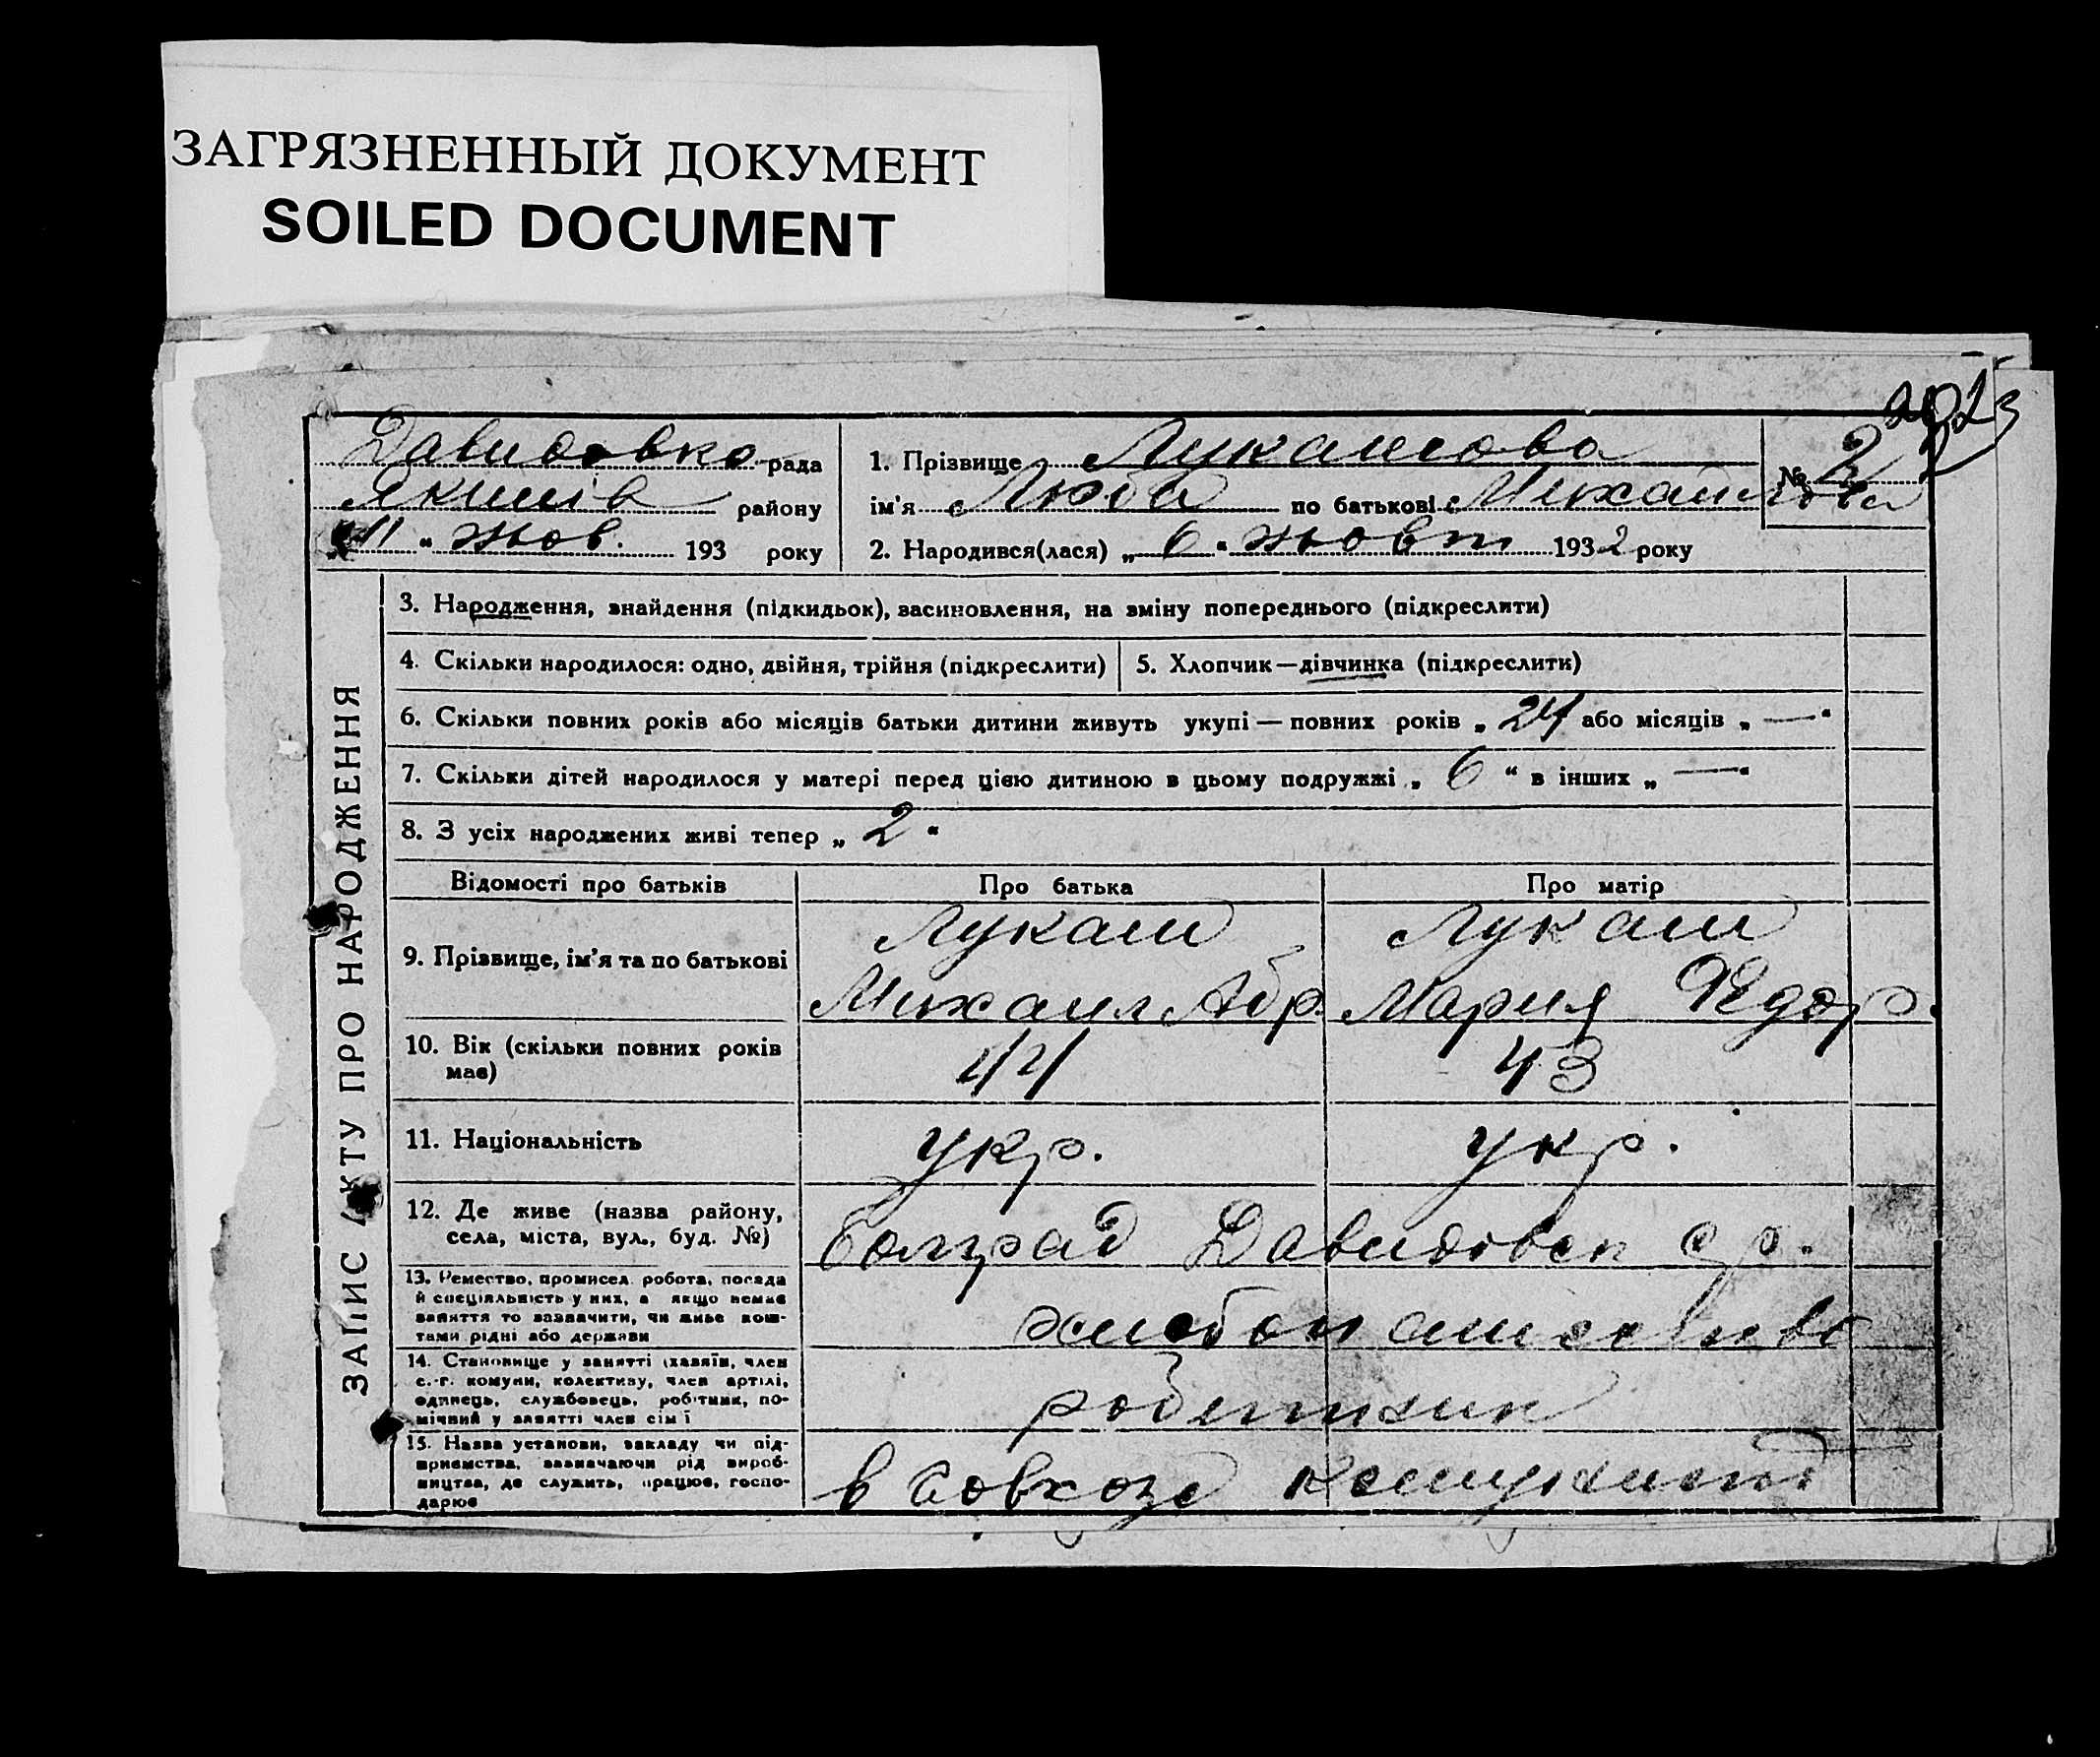 ЗАГРЯЗНЕННЫЙ ДОКУМЕНТ
SOILED DOCUMENT
Давидовка рада
Якимів району
"11" жов. 193 року
1. Прізвище Лукашова
ім'я Люба по батькові Михайлова
2. Народився(лася) „6" жовт 1932 року
№ 2
ЗАПИС АКТУ ПРО НАРОДЖЕННЯ
3. Народження, знайдення (підкидьок), васиновлення, на зміну попереднього (підкреслити)
4. Скільки народилося: одно, двійня, трійня (підкреслити) 5. Хлопчик—дівчинка (підкреслити)
6. Скільки повних років або місяців батьки дитини живуть укупі — повних років „24 або місяців „—"
7. Скільки дітей народилося у матері перед цією дитиною в цьому подружжі „6" в інших „—"
8. З усіх народжених живі тепер „2"
Відомості про батьків Про батька Про матір
9. Прізвище, ім'я та по батькові
Лукаш
Михаил Абр.
Лукаш
Мария Федор.
10. Вік (скільки повних років
має)
44
43
11. Національність укр. укр.
12. Де живе (назва району,
села, міста, вул., буд. №)
Болград Давидовск с р.
13. Ремество, промисел, робота, посада
й спеціяльність у них, а якщо немає
заняття то зазначити, чи живе кош-
тами рідні або держави
14. Становище у занятті (хазяїн, член
с.-г. комуни, колективу, член артілі,
одинець, службовець, робітник, по-
мічний у занятті член сім'ї
робітник
15. Назва установи, закладу чи під-
приємства, зазначаючи рід вироб-
ництва, де служить, працює, госпо-
дарює
в Совхозе